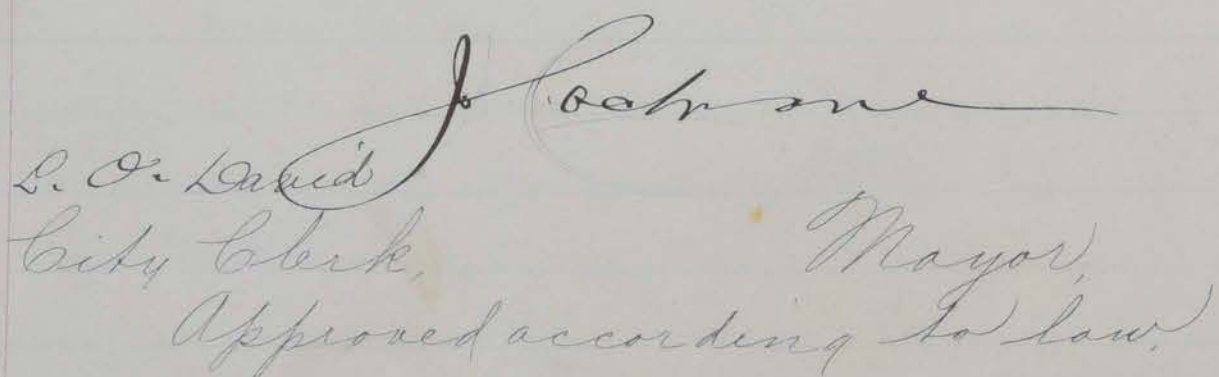 J Cochrane
L. O. David
City Clerk, Mayor,
Approved according to law.